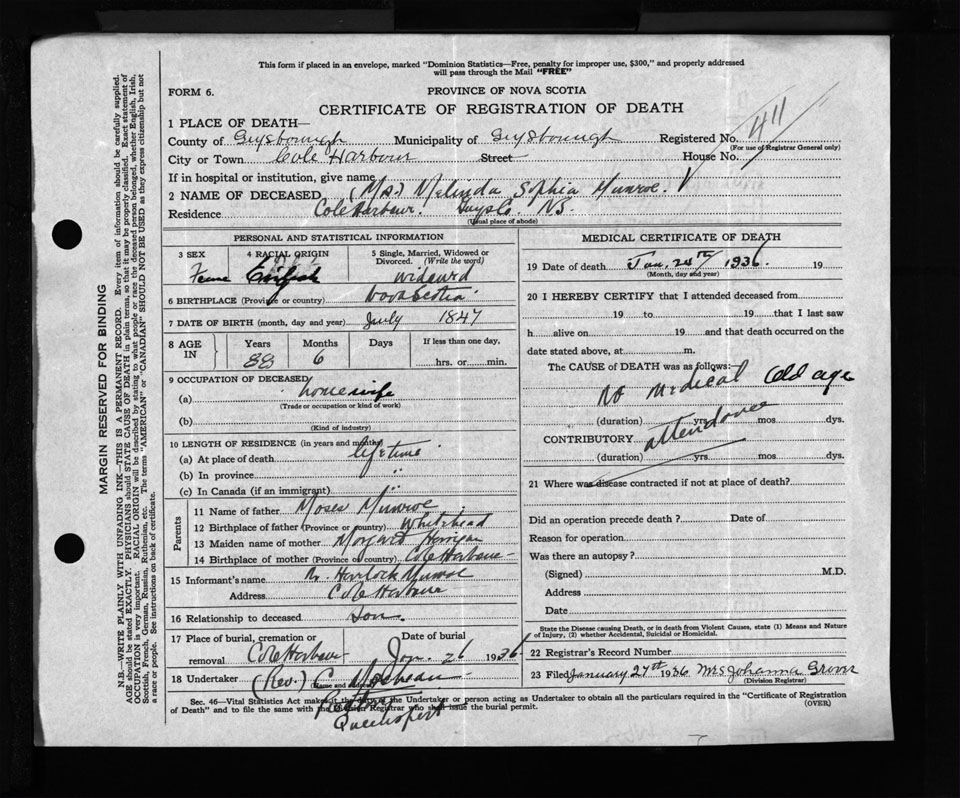 This form if placed in an envelope, marked "Dominion Statistics—Free, penalty for improper use, $300," and properly addressed
will pass through the Mail "FREE"
FORM 6.
PROVINCE OF NOVA SCOTIA
CERTIFICATE OF REGISTRATION OF DEATH
1 PLACE OF DEATH—
County of Guysborough Municipality of Guysborough Registered No. 411
(For use of Registrar General only)
City or Town Cole Harbour Street House No.
If in hospital or institution, give name
2 NAME OF DECEASED (Mrs.) Melinda Sophia Munroe.
Residence Cole Harbour. Guys Co. N.S.
(Usual place of abode)
PERSONAL AND STATISTICAL INFORMATION
3 SEX 4 RACIAL ORIGIN 5 Single, Married, Widowed or
Divorced. (Write the word)
English
6 BIRTHPLACE (Province or country) Nova Scotia
7 DATE OF BIRTH (month, day and year) July 1847
8 AGE IN Years Months Days If less than one day,
88 6 hrs. or min.
9 OCCUPATION OF DECEASED
(a) housewife
(Trade or occupation or kind of work)
(b)
(Kind of industry)
10 LENGTH OF RESIDENCE (in years and months)
(a) At place of death lifetime
(b) In province "
(c) In Canada (if an immigrant) "
Parents
11 Name of father Moses Munroe
12 Birthplace of father (Province or country) Whitehead
13 Maiden name of mother Margaret Horrigan
14 Birthplace of mother (Province or country) Cole Harbour
15 Informant's name Munroe
Address Cole Harbour
16 Relationship to deceased Son
17 Place of burial, cremation or Date of burial
removal Cole Harbour Jan. 26 1936
18 Undertaker (Rev.) C.
(Name and address)
MEDICAL CERTIFICATE OF DEATH
19 Date of death Jan. 24th 1936. 19
(Month, day and year)
20 I HEREBY CERTIFY that I attended deceased from
19 to 19 that I last saw
h alive on 19 and that death occurred on the
date stated above, at m.
The CAUSE of DEATH was as follows:—
No medical Old age
(duration) yrs mos dys.
attendance
CONTRIBUTORY
(duration) yrs mos dys.
21 Where was disease contracted if not at place of death?
Did an operation precede death? Date of
Reason for operation
Was there an autopsy?
(Signed) M.D.
Address
Date
State the Disease causing Death, or in death from Violent Causes, state (1) Means and Nature
of Injury, (2) whether Accidental, Suicidal or Homicidal.
22 Registrar's Record Number
23 Filed January 27th 1936 Mrs Johanna
(Division Registrar)
Sec. 46—Vital Statistics Act makes it the duty of the Undertaker or person acting as Undertaker to obtain all the particulars required in the "Certificate of Registration
of Death" and to file the same with the Division Registrar who shall issue the burial permit.
(OVER)
MARGIN RESERVED FOR BINDING
N.B.—WRITE PLAINLY WITH UNFADING INK—THIS IS A PERMANENT RECORD. Every item of information should be carefully supplied.
AGE should be stated EXACTLY. PHYSICIANS should STATE CAUSE OF DEATH in plain terms, so that it may be properly classified. Exact statement of
OCCUPATION is very important. RACIAL ORIGIN will be described by stating to what people or race the deceased person belonged, whether English, Irish,
Scottish, French, German, Russian, Ruthenian, etc. The terms "AMERICAN" or "CANADIAN" SHOULD NOT BE USED as they express citizenship but not
a race or people. See instructions on back of certificate.